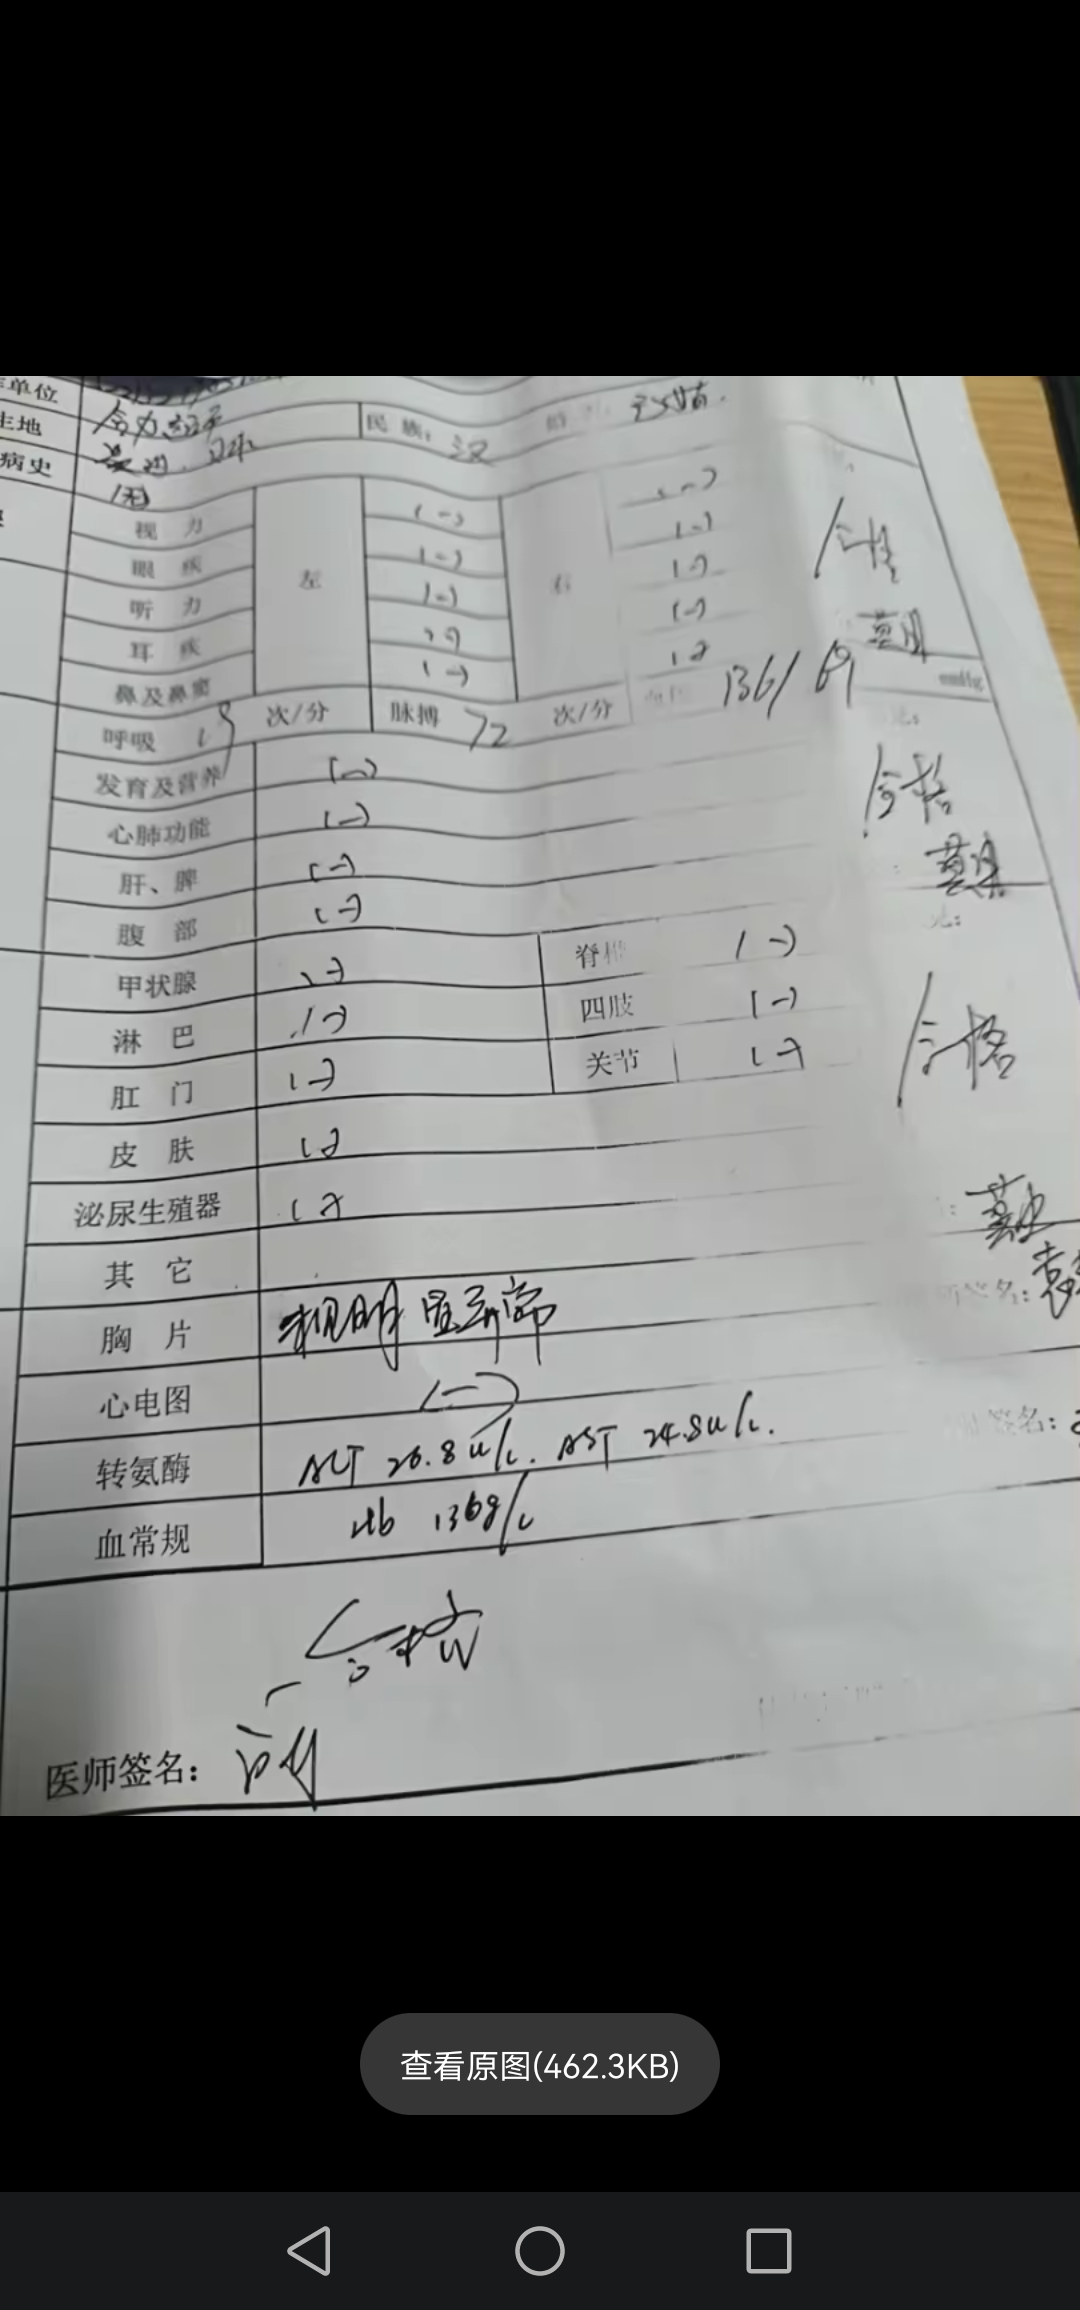 单位
生地
民族：汉 婚 已婚.
病史
无
视力 (-) (-)
眼疾 (-) (-)
左 右
听力 (-) (-)
耳疾 (-) (-)
鼻及鼻窦 (-) (-)
合格
呼吸 19 次/分 脉搏 72 次/分 血压 136/69 mmHg
发育及营养 (-)
心肺功能 (-)
合格
肝、脾 (-)
腹部 (-)
甲状腺 (-) 脊椎 (-)
淋巴 (-) 四肢 (-)
肛门 (-) 关节 (-)
合格
皮肤 (-)
泌尿生殖器 (-)
其它
胸片 未见明显异常
签名：袁
心电图 (-)
转氨酶 ALT 26.8u/L. AST 24.8u/L.
签名：
血常规 Hb 136g/L
合格
医师签名：
查看原图(462.3KB)